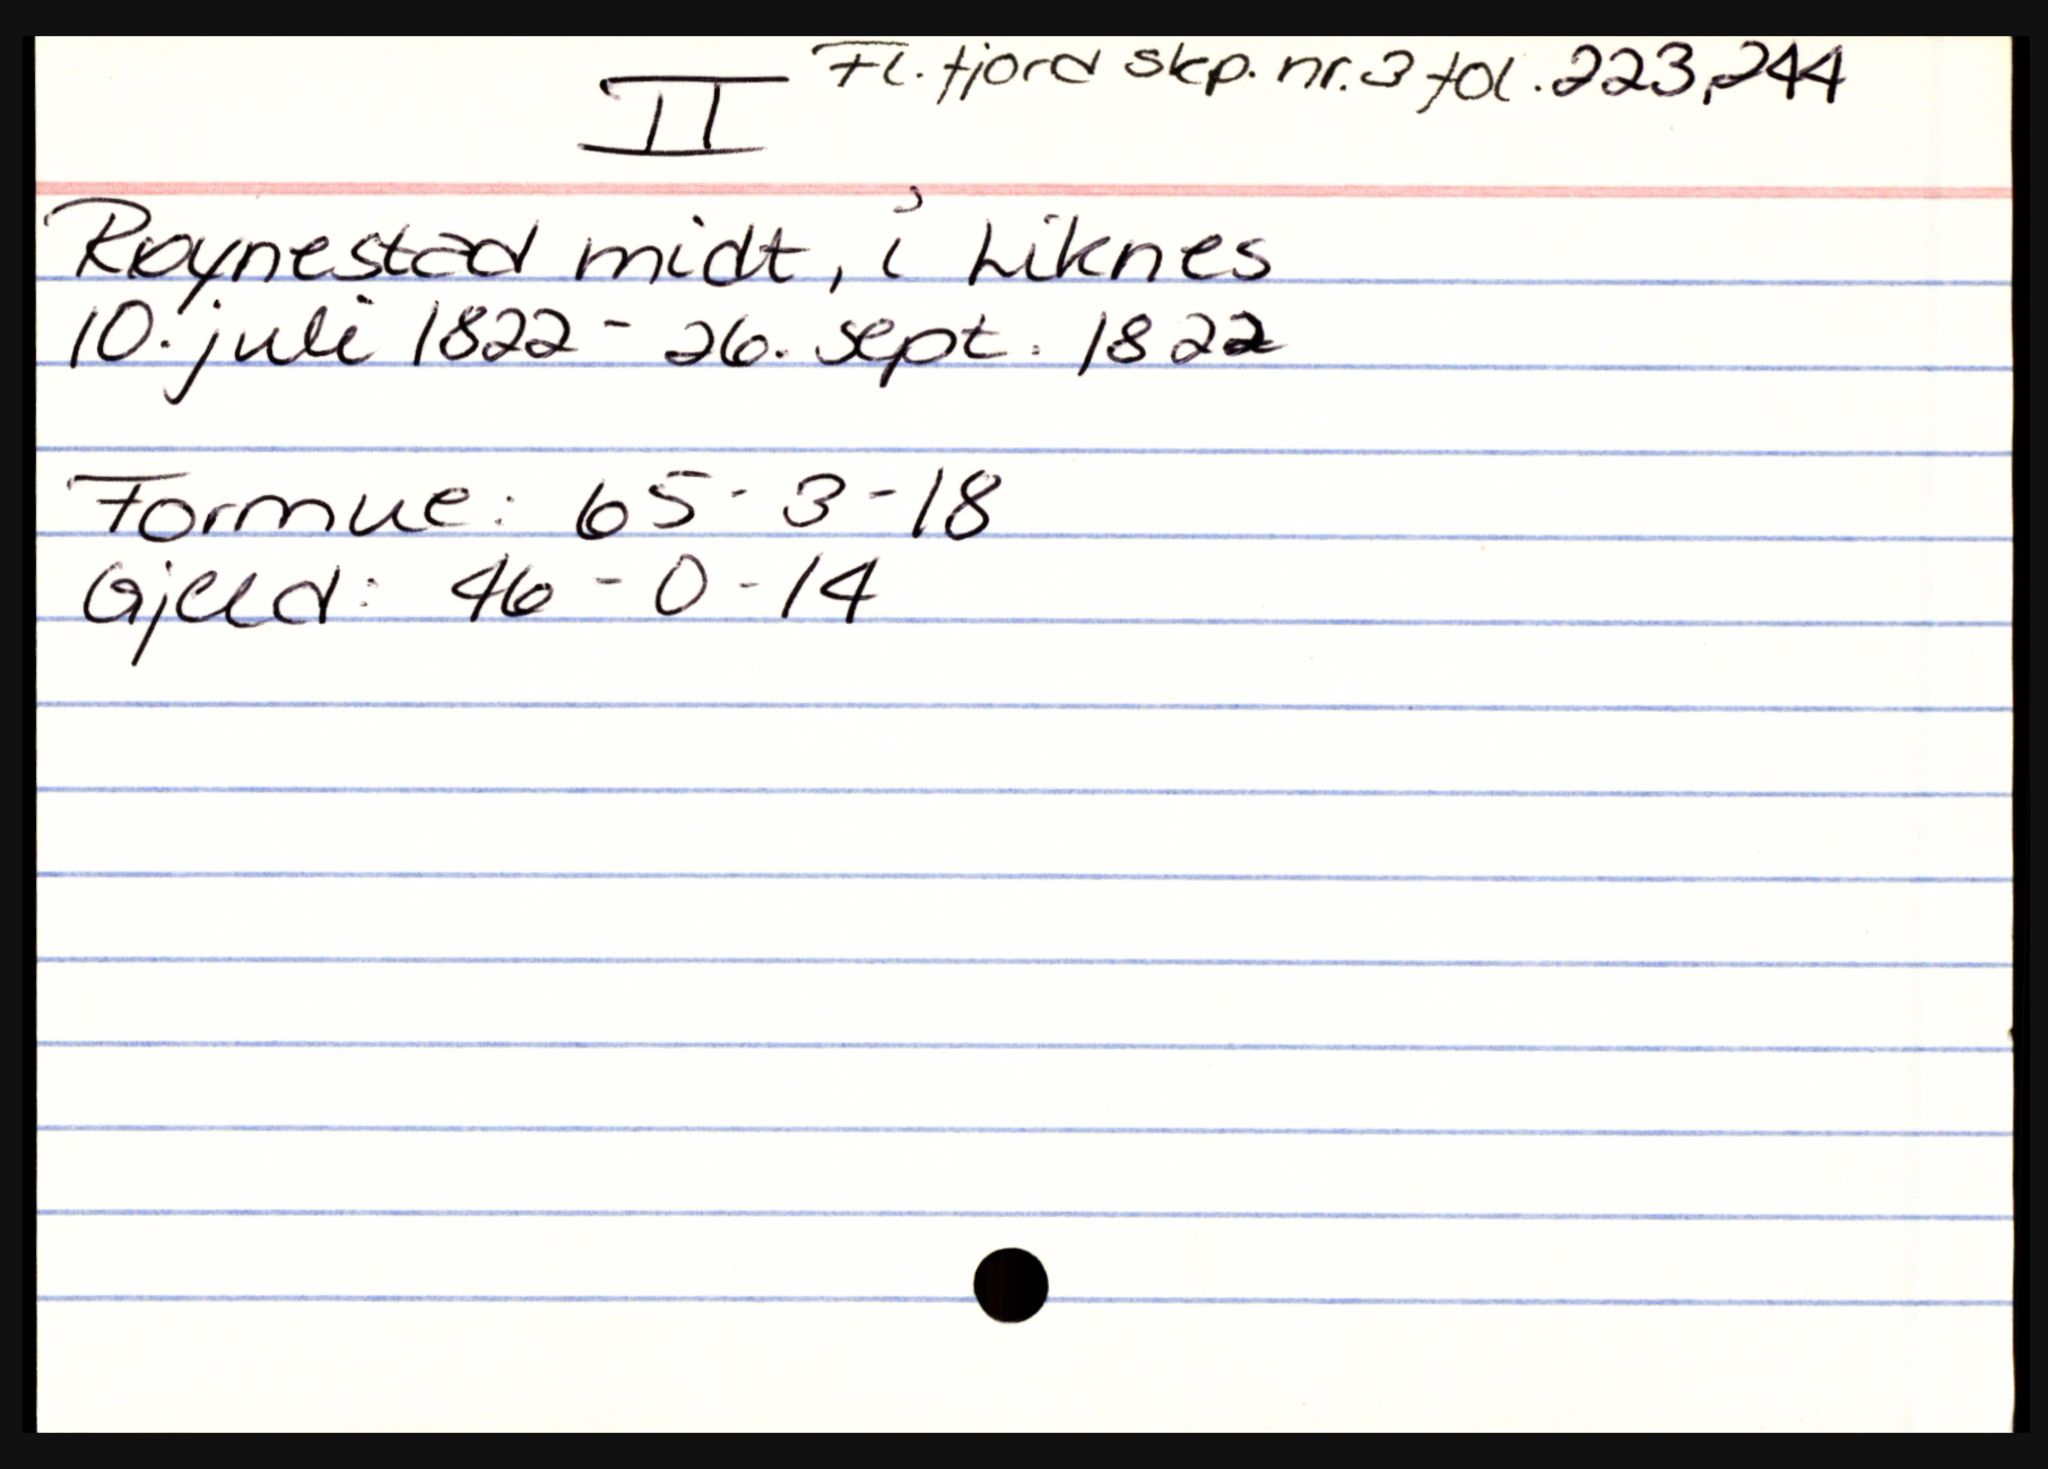 II Fl. fjord skp. nr. 3 fol. 223, 244
Røynestad midt, i Liknes
10. juli 1822 - 26. sept. 1822
Formue: 65 - 3 - 18
Gjeld: 46 - 0 - 14